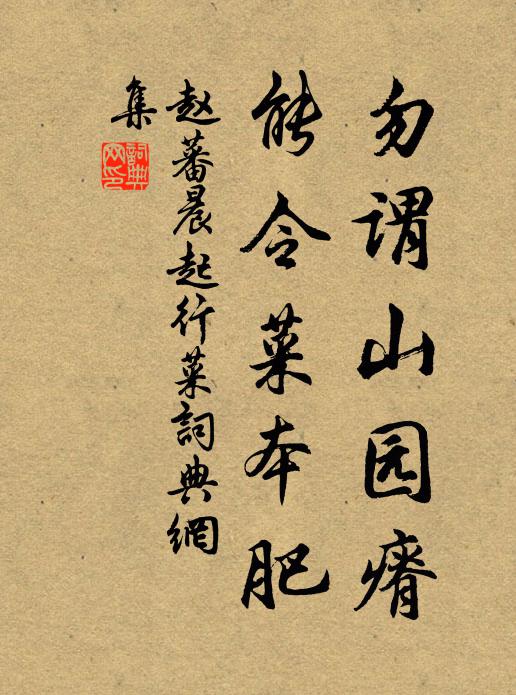 勿谓山园瘠
能令菜本肥
赵蕃晨起行菜詞典網
集
詞典网印